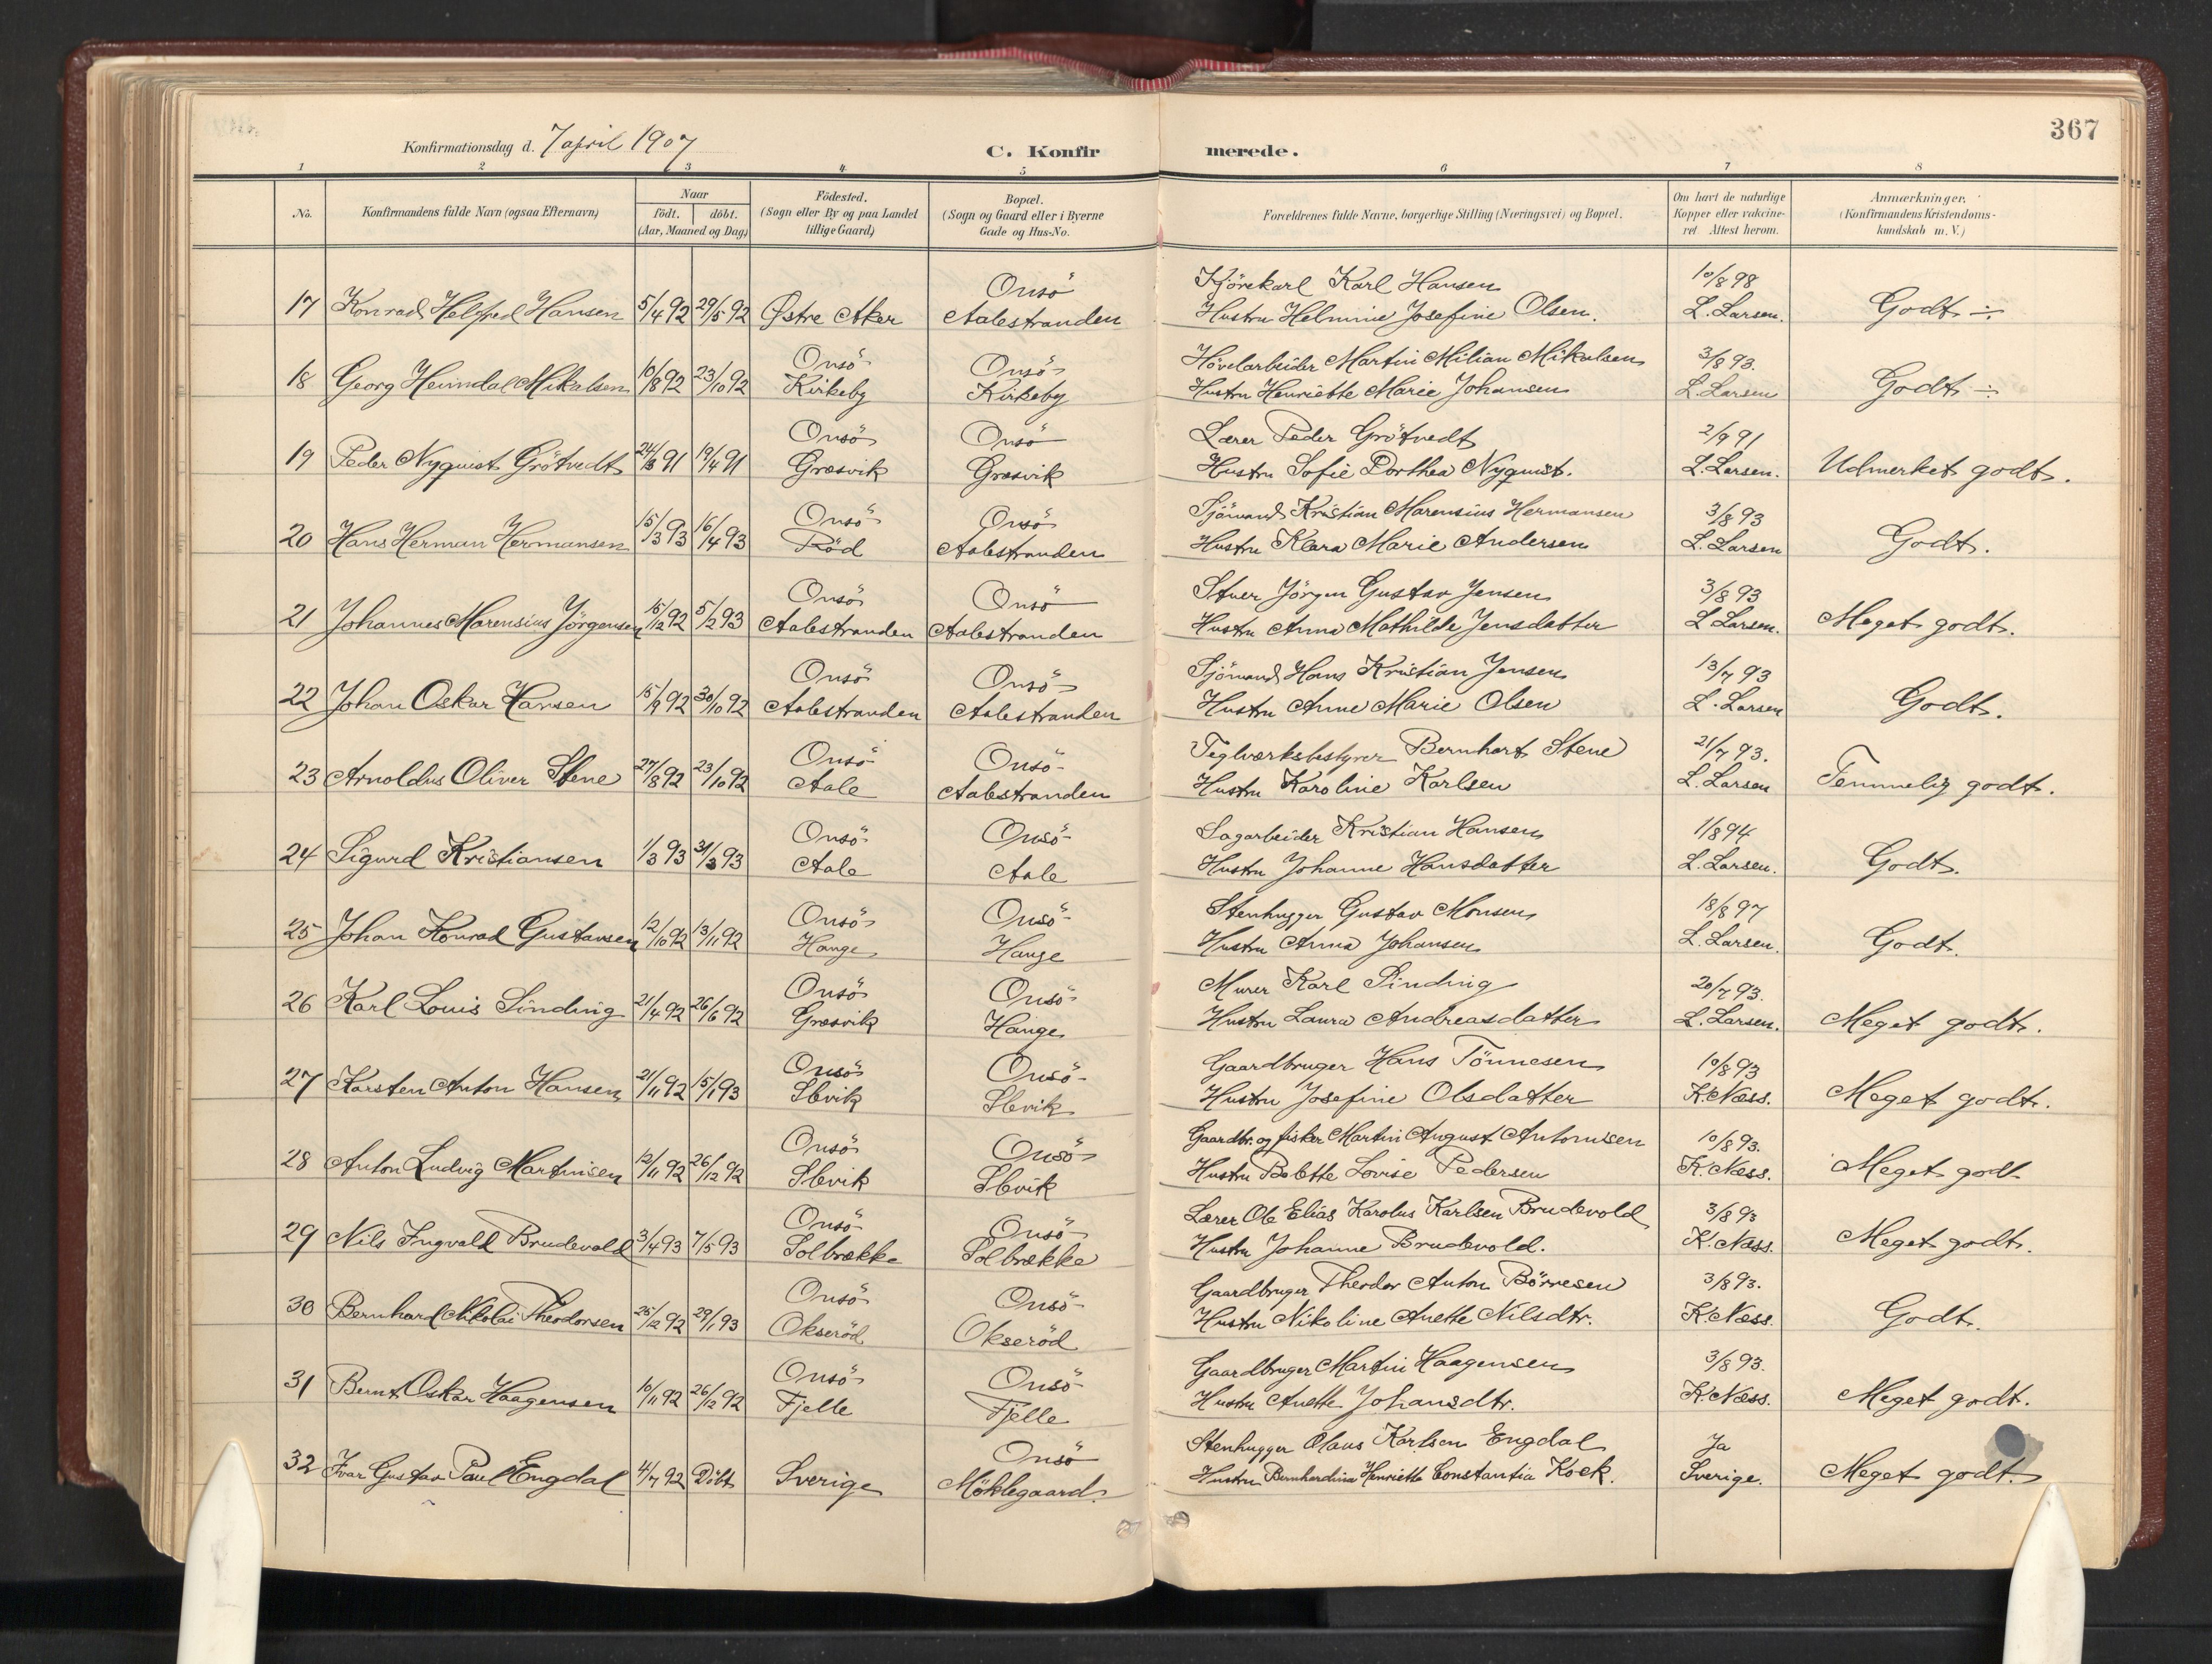 367
Konfirmationsdag d. 7 april 1907
C. Konfirmerede.
1 2 3 4 5 6 7 8
No. Konfirmandens fulde Navn (ogsaa Efternavn) Naar födt. döbt. (Aar, Maaned og Dag) Födested. (Sogn eller By og paa Landet tillige Gaard) Bopæl. (Sogn og Gaard eller i Byerne Gade og Hus-No. Forældrenes fulde Navne, borgerlige Stilling (Næringsvei) og Bopæl. Om havt de naturlige Kopper eller vakcineret Attest herom. Anmærkninger. (Konfirmandens Kristendomskundskab m. V.)
Onsö Kjörekarl Karl Hansen 10/8 98
17 Konrad Helfred Hansen 5/4 92 29/5 92 Østre Aker Aalestranden Hustru Helmine Josefine Olsen. L. Larsen. Godt ÷
Onsö Onsö Hövelarbeider Martin Milian Mikalsen 3/8 93.
18 Georg Heimdal Mikalsen 10/8 92 23/10 92 Kirkeby Kirkeby Hustru Henriette Marie Johansen L. Larsen Godt ÷
Onsö Onsö Lærer Peder Grötvedt 2/9 91
19 Peder Nyquist Grötvedt 24/3 91 19/4 91 Græsvik Græsvik Hustru Sofie Dorthea Nyquist. L. Larsen. Udmerket godt.
Onsö Onsö Sjömand Kristian Marensius Hermansen 3/8 93
20 Hans Herman Hermansen 15/3 93 16/4 93 Röd Aalestranden Hustru Klara Marie Andersen L. Larsen Godt.
Onsö Onsö Stuer Jörgen Gustav Jensen 3/8 93
21 Johannes Marensius Jörgensen 15/12 92 5/2 93 Aalestranden Aalestranden Hustru Anna Mathilde Jensdatter L Larsen. Meget godt.
Onsö Onsö Sjömand Hans Kristian Jensen 13/7 93
22 Johan Oskar Hansen 15/9 92 30/10 92 Aalestranden Aalestranden Hustru Anne Marie Olsen L. Larsen Godt.
Onsö Onsö Teglværksbestyrer Bernhart Stene 21/7 93.
23 Arnoldus Oliver Stene 27/8 92 23/10 92 Aale Aalestranden Hustru Karoline Karlsen L. Larsen Temmelig godt.
Onsö Onsö Sagarbeider Kristian Hansen 1/8 94
24 Sigurd Kristiansen 1/3 93 31/3 93 Aale Aale Hustru Johanne Hansdatter L. Larsen. Godt.
Onsö Onsö Stenhugger Gustav Monsen 18/8 97
25 Johan Konrad Gustavsen 12/10 92 13/11 92 Hauge Hauge Hustru Anna Johansen L. Larsen. Godt.
Onsö Onsö Murer Karl Sinding 20/7 93.
26 Karl Louis Sinding 21/4 92 26/6 92 Græsvik Hauge Hustru Laura Andreasdatter L. Larsen. Meget godt.
Onsö Onsö Gaardbruger Hans Tönnesen 10/8 93
27 Karsten Anton Hansen 21/11 92 15/1 93 Slevik Slevik Hustru Josefine Olsdatter K. Næss. Meget godt.
Onsö Onsö Gaardbr. og fisker Martin August Antonisen 10/8 93.
28 Anton Ludvig Martinisen 12/11 92 26/12 92 Slevik Slevik Hustru Bolette Lovise Pedersen K. Næss. Meget godt
Onsö Onsö Lærer Ole Elias Karolus Karlsen Brudevold 3/8 93
29 Nils Ingvald Brudevold 3/4 93 7/5 93 Solbrække Solbrække Hustru Johanne Brudevold. K. Næss. Meget godt.
Onsö Onsö Gaardbruger Theodor Anton Börresen 3/8 93.
30 Bernhard Nikolai Theodorsen 25/12 92 29/1 93 Okseröd Okseröd Hustru Nikoline Anette Nilsdtr. K. Næss. Godt.
Onsö Onsö Gaardbruger Martin Haagensen 3/8 93.
31 Bernt Oskar Haagensen 10/11 92 26/12 92 Fjelle Fjelle Hustru Anette Johansdtr. K. Næss. Meget godt.
Onsö Stenhugger Olaus Karlsen Engdal Ja
32 Ivar Gustav Paul Engdal 4/7 92 Döbt Sverige Möklegaard. Hustru Bernhardina Henriette Constantia Kock. Sverige. Meget godt.